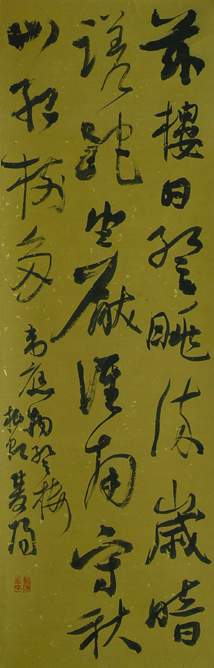 茲樓日登眺流歲暗
蹉跎坐厭淮南守秋
山紅樹多
韋應物登樓